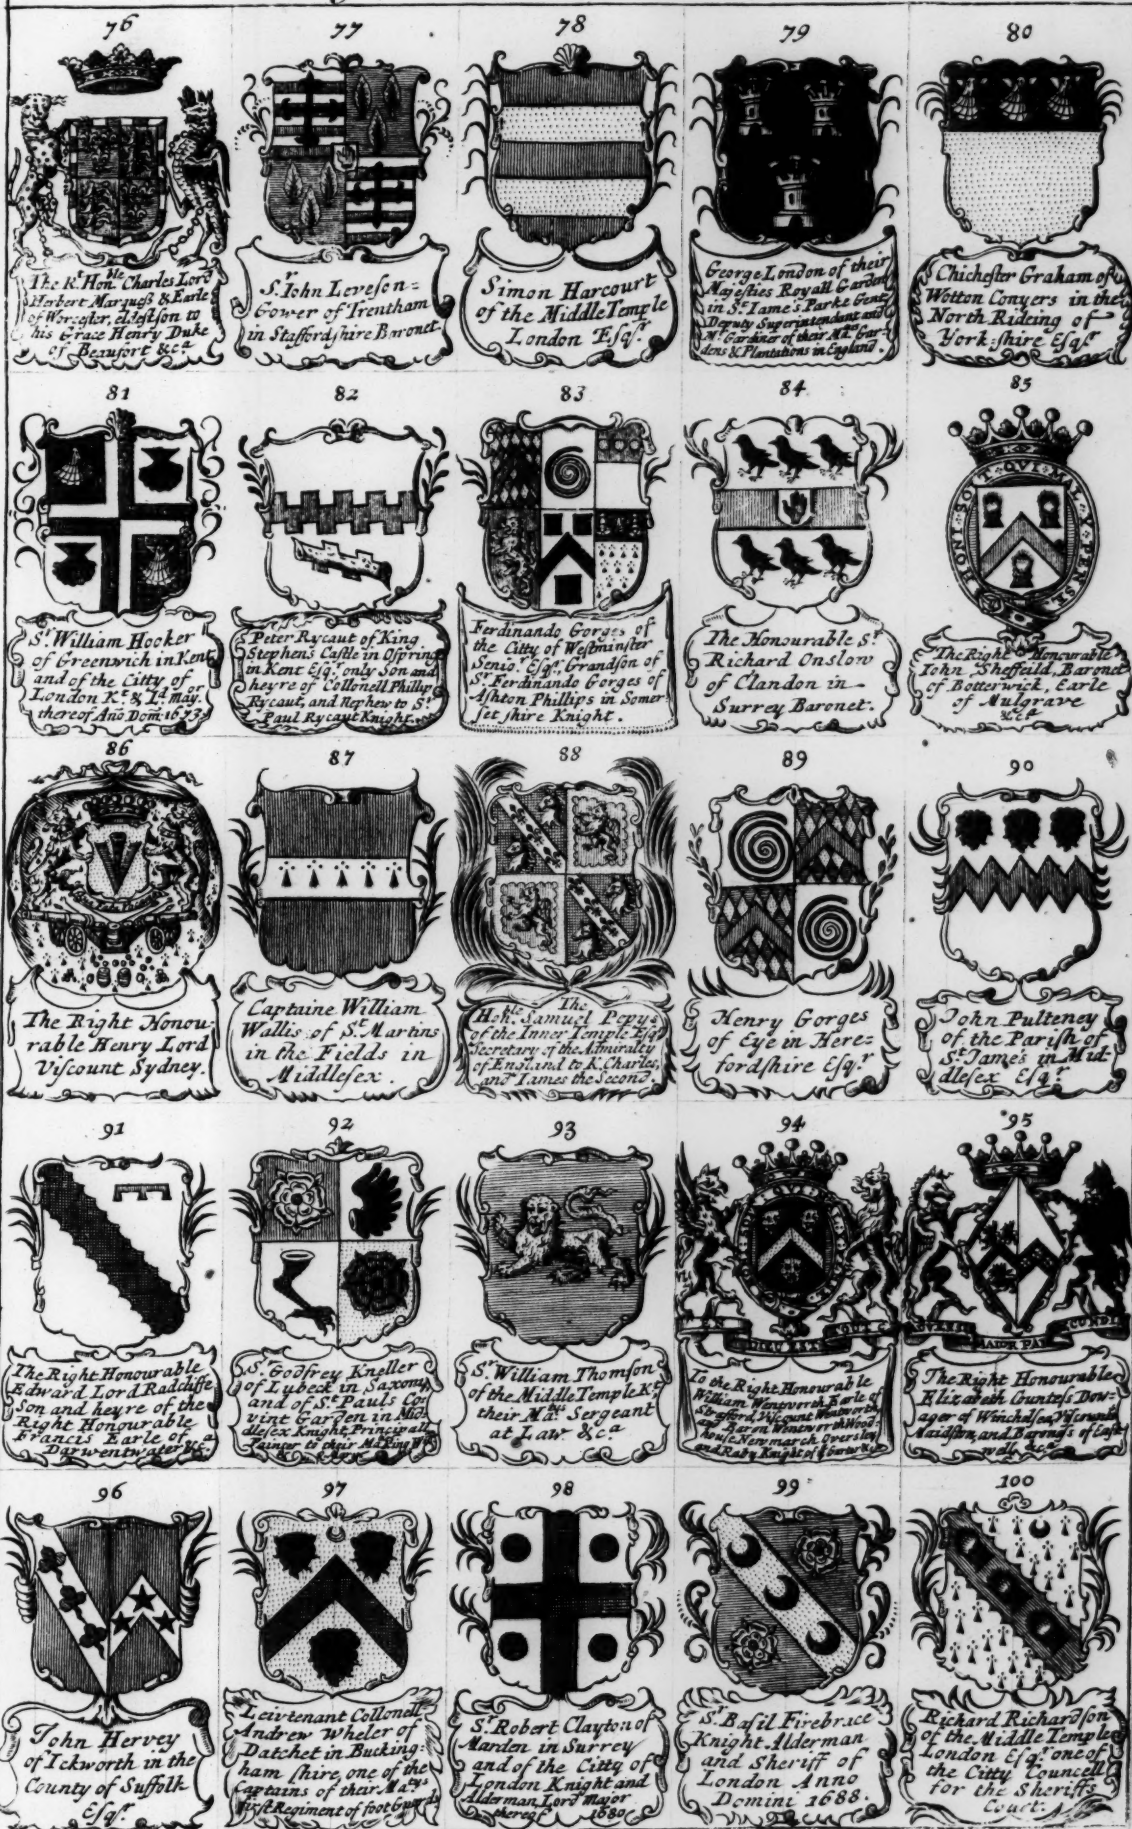 76
The Rt. Honble. Charles Lord
Herbert Marquess & Earle
of Worcester, eldest son to
his Grace Henry Duke
of Beaufort &ca
77
Sr. Iohn Leveson=
Gower of Trentham
in Staffordshire Baronet
78
Simon Harcourt
of the Middle Temple
London Esqr.
79
George London of their
Majesties Royall Garden
in St. Iame's Parke Gent
Deputy Superintendant and
Mr. Gardiner of their Mats. Gar-
dens & Plantations in England.
80
Chichester Graham of
Wotton Conyers in the
North Rideing of
York-shire Esqr.
81
Sr. William Hooker
of Greenwich in Kent
and of the Citty of
London Kt. & Ld. Mayor.
thereof Ano Dom: 1673
82
Peter Rycaut of King
Stephens Castle in Ospring
in Kent Esqr. only Son and
heyre of Collonell Phillip
Rycaut, and Nephew to Sr.
Paul Rycaut Knight.
83
Ferdinando Gorges of
the Citty of Westminster
Senior. Esqr. Grandson of
Sr. Ferdinando Gorges of
Ashton Phillips in Somer
set shire Knight.
84
The Honourable Sr.
Richard Onslow
of Clandon in
Surrey Baronet.
85
HONI SOIT QUI MAL Y PENSE
The Right Honourable
Iohn Sheffeild, Baronet
of Botterwick, Earle
of Mulgrave
&ca
86
The Right Honou-
rable Henry Lord
Viscount Sydney.
87
Captaine William
Wallis of St. Martins
in the Fields in
Middlesex.
88
The
Honble. Samuel Pepys
of the Inner Temple Esqr
Secretary of the Admiralty
of England to K. Charles,
and Iames the Second.
89
Henry Gorges
of Eye in Here=
fordshire Esqr.
90
John Pulteney
of the Parish of
St. James in Mid-
dlesex Esqr.
91
The Right Honourable
Edward Lord Radcliffe
Son and heyre of the
Right Honourable
Francis Earle of
Darwentwater &ca
92
Sr. Godfrey Kneller
of Lubeck in Saxony,
and of St. Pauls Co-
vint Garden in Mid
dlesex Knight, Principal
Painter to their
93
Sr. William Thomson
of the Middle Temple Kt.
their Mats. Sergeant
at Law &ca
94
EN DIEU EST
To the Right Honourable
William Wentworth Earle of
Strafford, Viscount Wentworth,
and Baron Wentworth Wood-
house, Newmarch, Oversley
and Raby, Knight of ye Garter &c
95
MAIOR PAR
The Right Honourable
Elizabeth Countess Dow-
ager of Winchelsea, Viscountess
Maidston, and Baroness of East-
well &ca
96
John Hervey
of Ickworth in the
County of Suffolk
Esqr.
97
Leivtenant Collonell
Andrew Wheler of
Datchet in Bucking-
ham shire, one of the
Captains of their Matys
first Regiment of foot Guards
98
Sr. Robert Clayton of
Marden in Surrey
and of the Citty of
London Knight and
Alderman, Lord Major
thereof 1680
99
Sr. Basil Firebrace
Knight Alderman
and Sheriff of
London Anno
Domini 1688.
100
Richard Richardson
of the Middle Temple
London Esqr. one of
the Citty Councell
for the Sheriffs
Court.